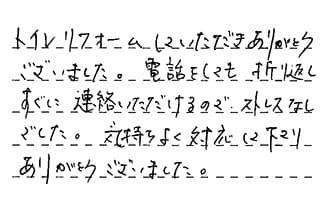 トイレリフォームしていただきありがとう
ございました。電話をしても折り返し
すぐに連絡いただけるので、ストレスなし
でした。気持ちよく対応して下さり
ありがとうございました。